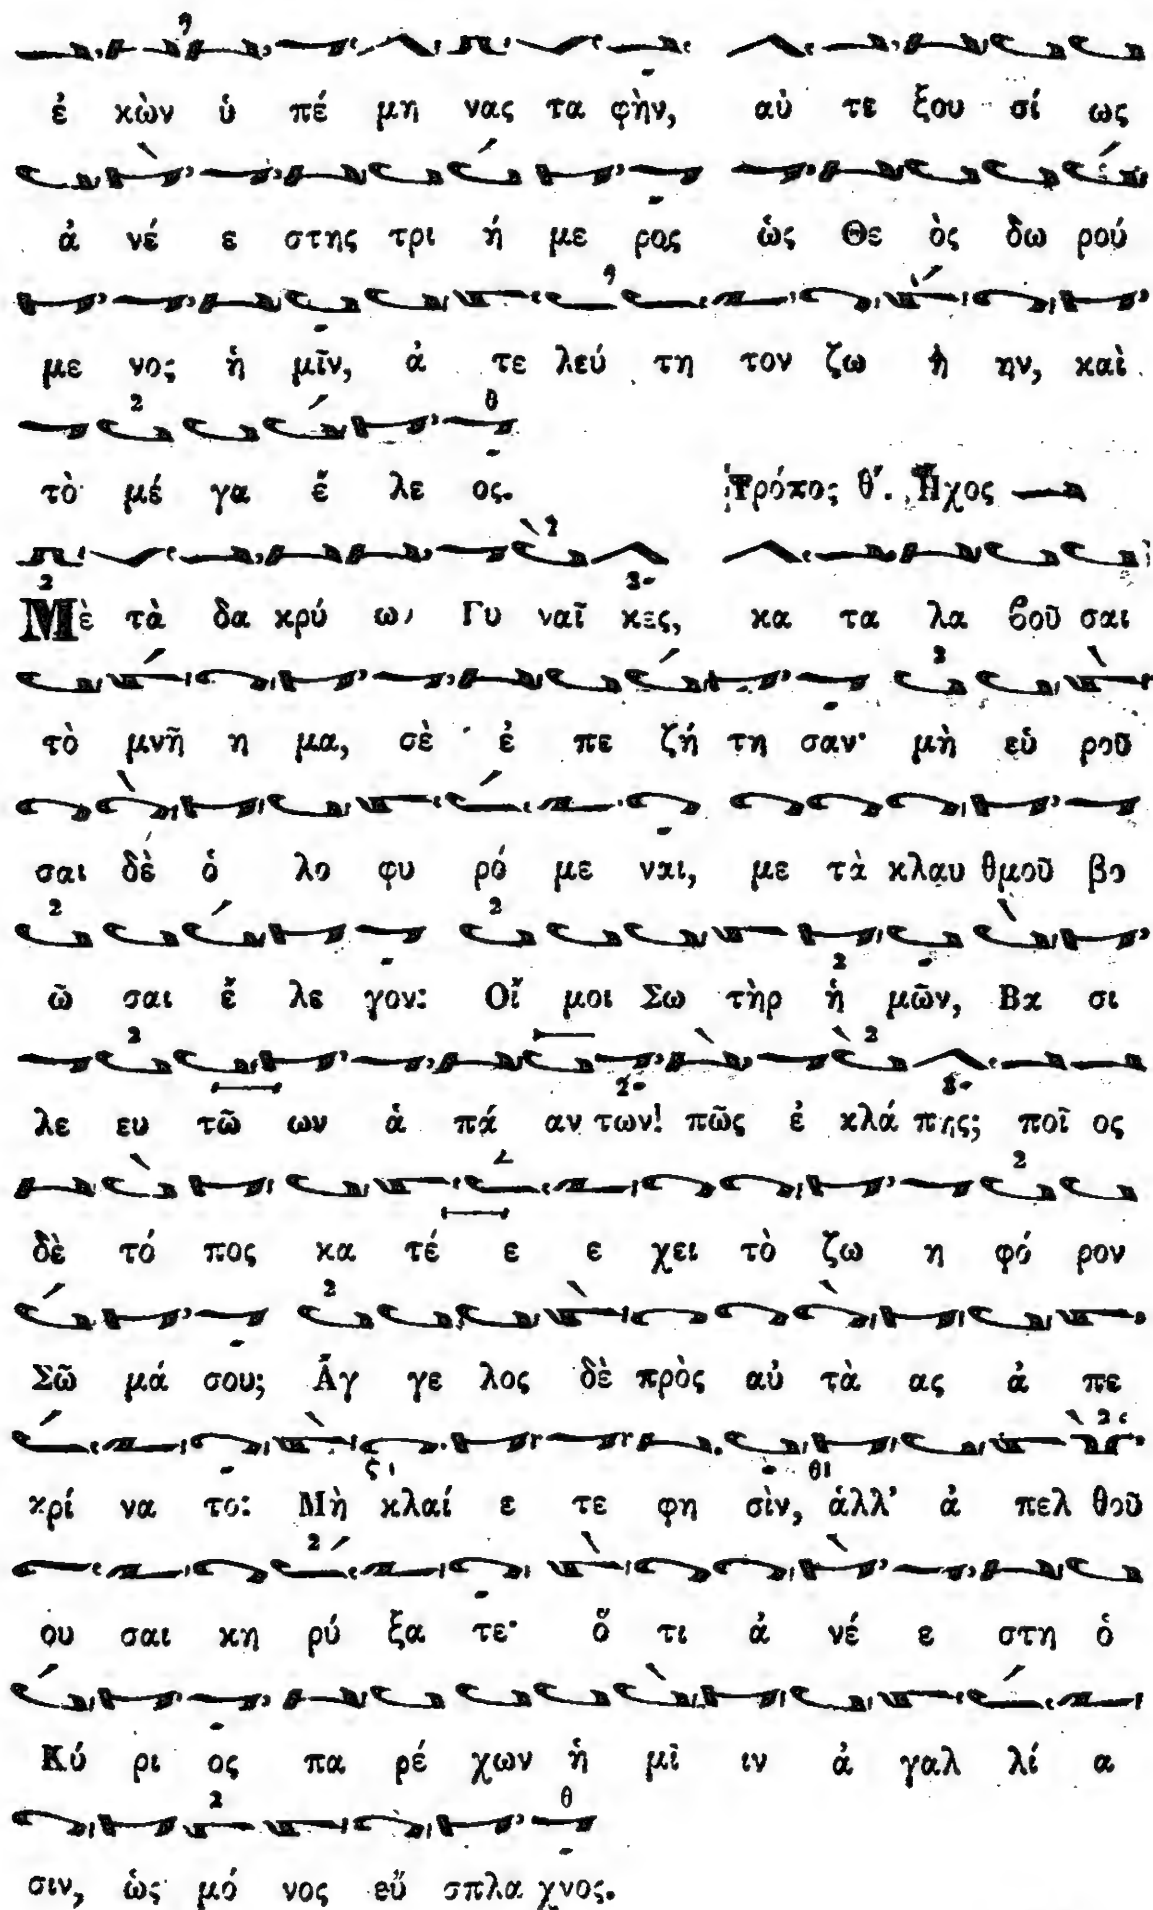 ἐ κὼν ὑ πέ μη νας τα φὴν, αὐ τε ξου σί ως
ἀ νέ ε στης τρι ή με ρος ὡς Θε ὸς δω ρού
με νος ἡ μῖν, ἀ τε λεύ τη τον ζω ὴ ην, καὶ
2 θ
τὸ μέ γα ἔ λε ος. Τρόπος θ΄. Ἦχος
2
2 3
Μὲ τὰ δα κρύ ω Γυ ναῖ κες, κα τα λα βοῦ σαι
2
τὸ μνῆ η μα, σὲ ἐ πε ζή τη σαν· μὴ εὑ ροῦ
σαι δὲ ὁ λο φυ ρό με ναι, με τὰ κλαυ θμοῦ βο
2 2
2
ῶ σαι ἔ λε γον: Οἴ μοι Σω τὴρ ἡ μῶν, Βα σι
2 2
2 3
λε ευ τῶ ων ἁ πά αν των! πῶς ἐ κλά πης; ποῖ ος
2
δὲ τό πος κα τέ ε ε χει τὸ ζω η φό ρον
2
Σῶ μά σου; Ἄγ γε λος δὲ πρὸς αὐ τὰ ας ἀ πε
2
ς θ
κρί να το: Μὴ κλαί ε τε φη σὶν, ἀλλ' ἀ πελ θοῦ
2
ου σαι κη ρύ ξα τε· ὅ τι ἀ νέ ε στη ὁ
Κύ ρι ος πα ρέ χων ἡ μῖ ιν ἀ γαλ λί α
2 θ
σιν, ὡς μό νος εὔ σπλα χνος.